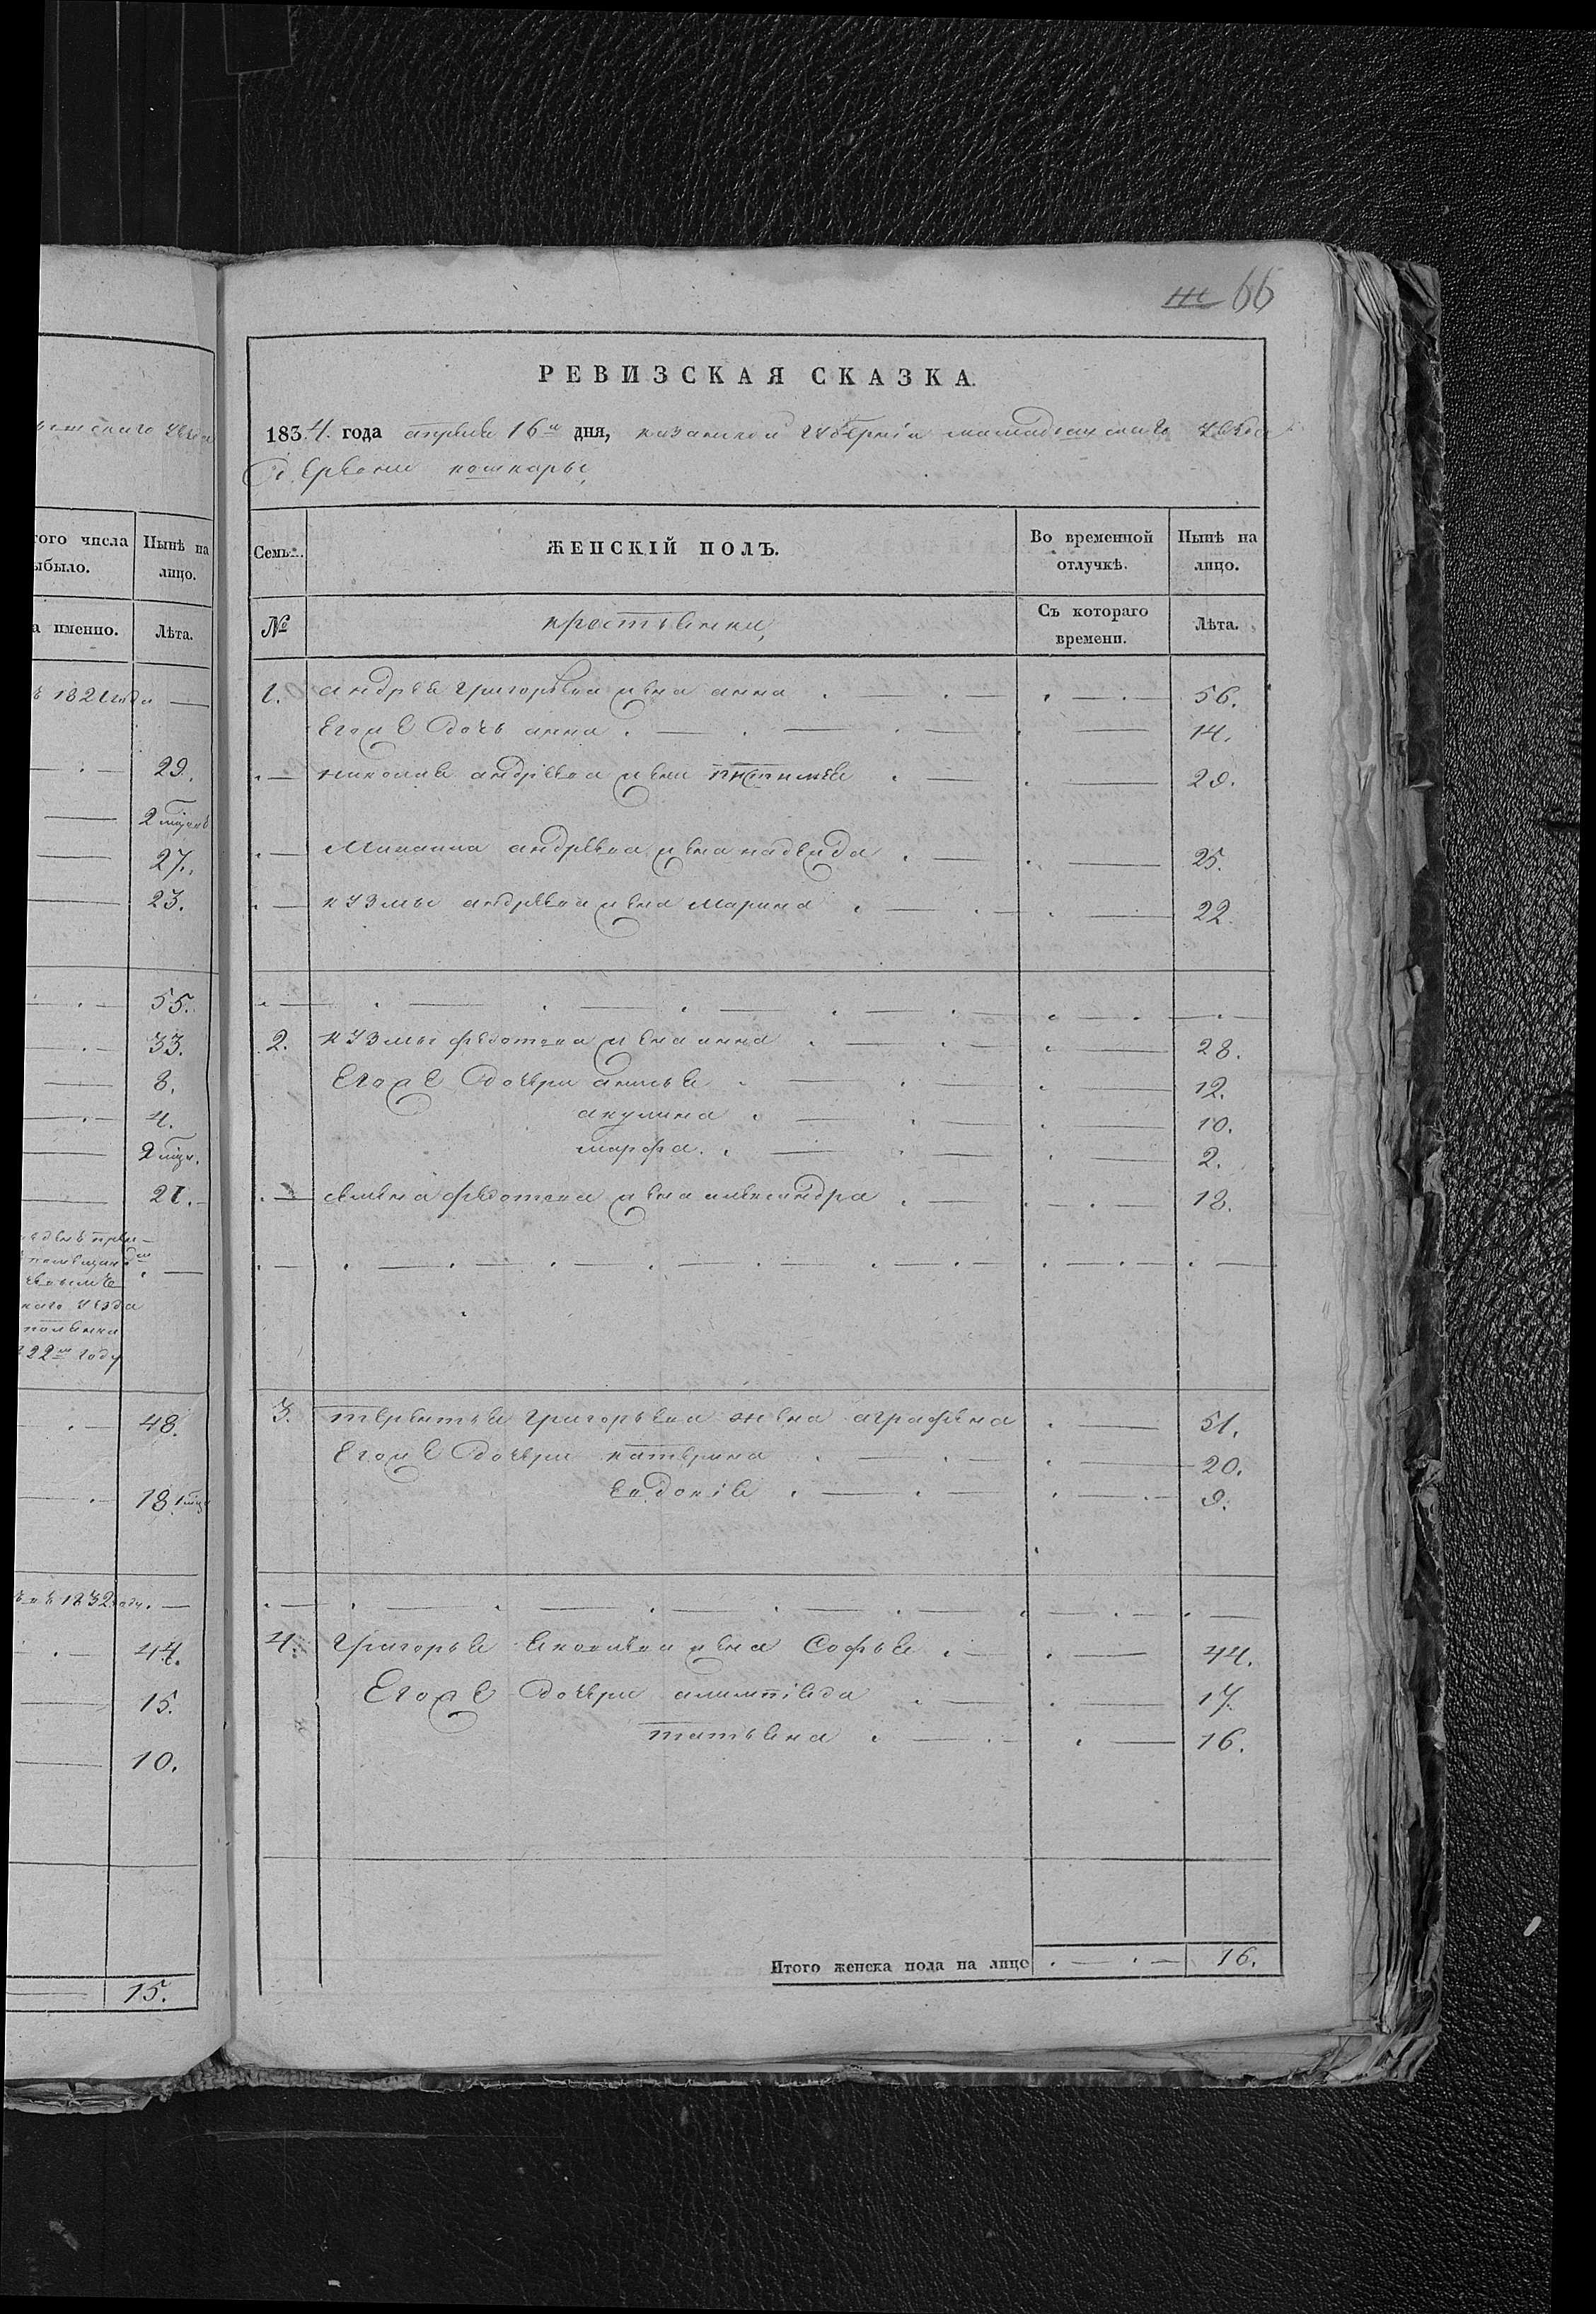 ьянскаго уѣзда
того числа
ыбыло.
Нынѣ на
лицо.
а именно.
Лѣта.
ъ 1821 года
29.
2 мѣц.
27.
23.
55.
33.
8.
4.
2 мѣц.
21.
22м году
48.
18
1832 году.
44.
15.
10.
15.
66
РЕВИЗСКАЯ СКАЗКА.
1834. года апреля 16го дня, казанской губерніи мамадышскаго уѣзда
деревни кошкары,
Семьи.
ЖЕНСКІЙ ПОЛЪ.
Во временной
отлучкѣ.
Нынѣ на
лицо.
№
крестьянки,
Съ котораго
времени.
Лѣта.
1. андрея григорьева жена анна 56.
Его же дочь анна 14.
николая андреева жена 29.
Михаила андреева жена надежда 25.
кузмы андреева жена марина 22.
2. кузмы федотова жена анна 28.
Его же дочери 12.
акулина 10.
марфа 2.
семена федотова жена александра 18.
3. терентья григорьева жена аграфена 51.
Его же дочери катерина 20.
евдокія 9.
4. григорья яковлева жена Софья 44.
Его же дочери алимпіяда 17.
татьяна 16.
Итого женска пола на лицо 16.